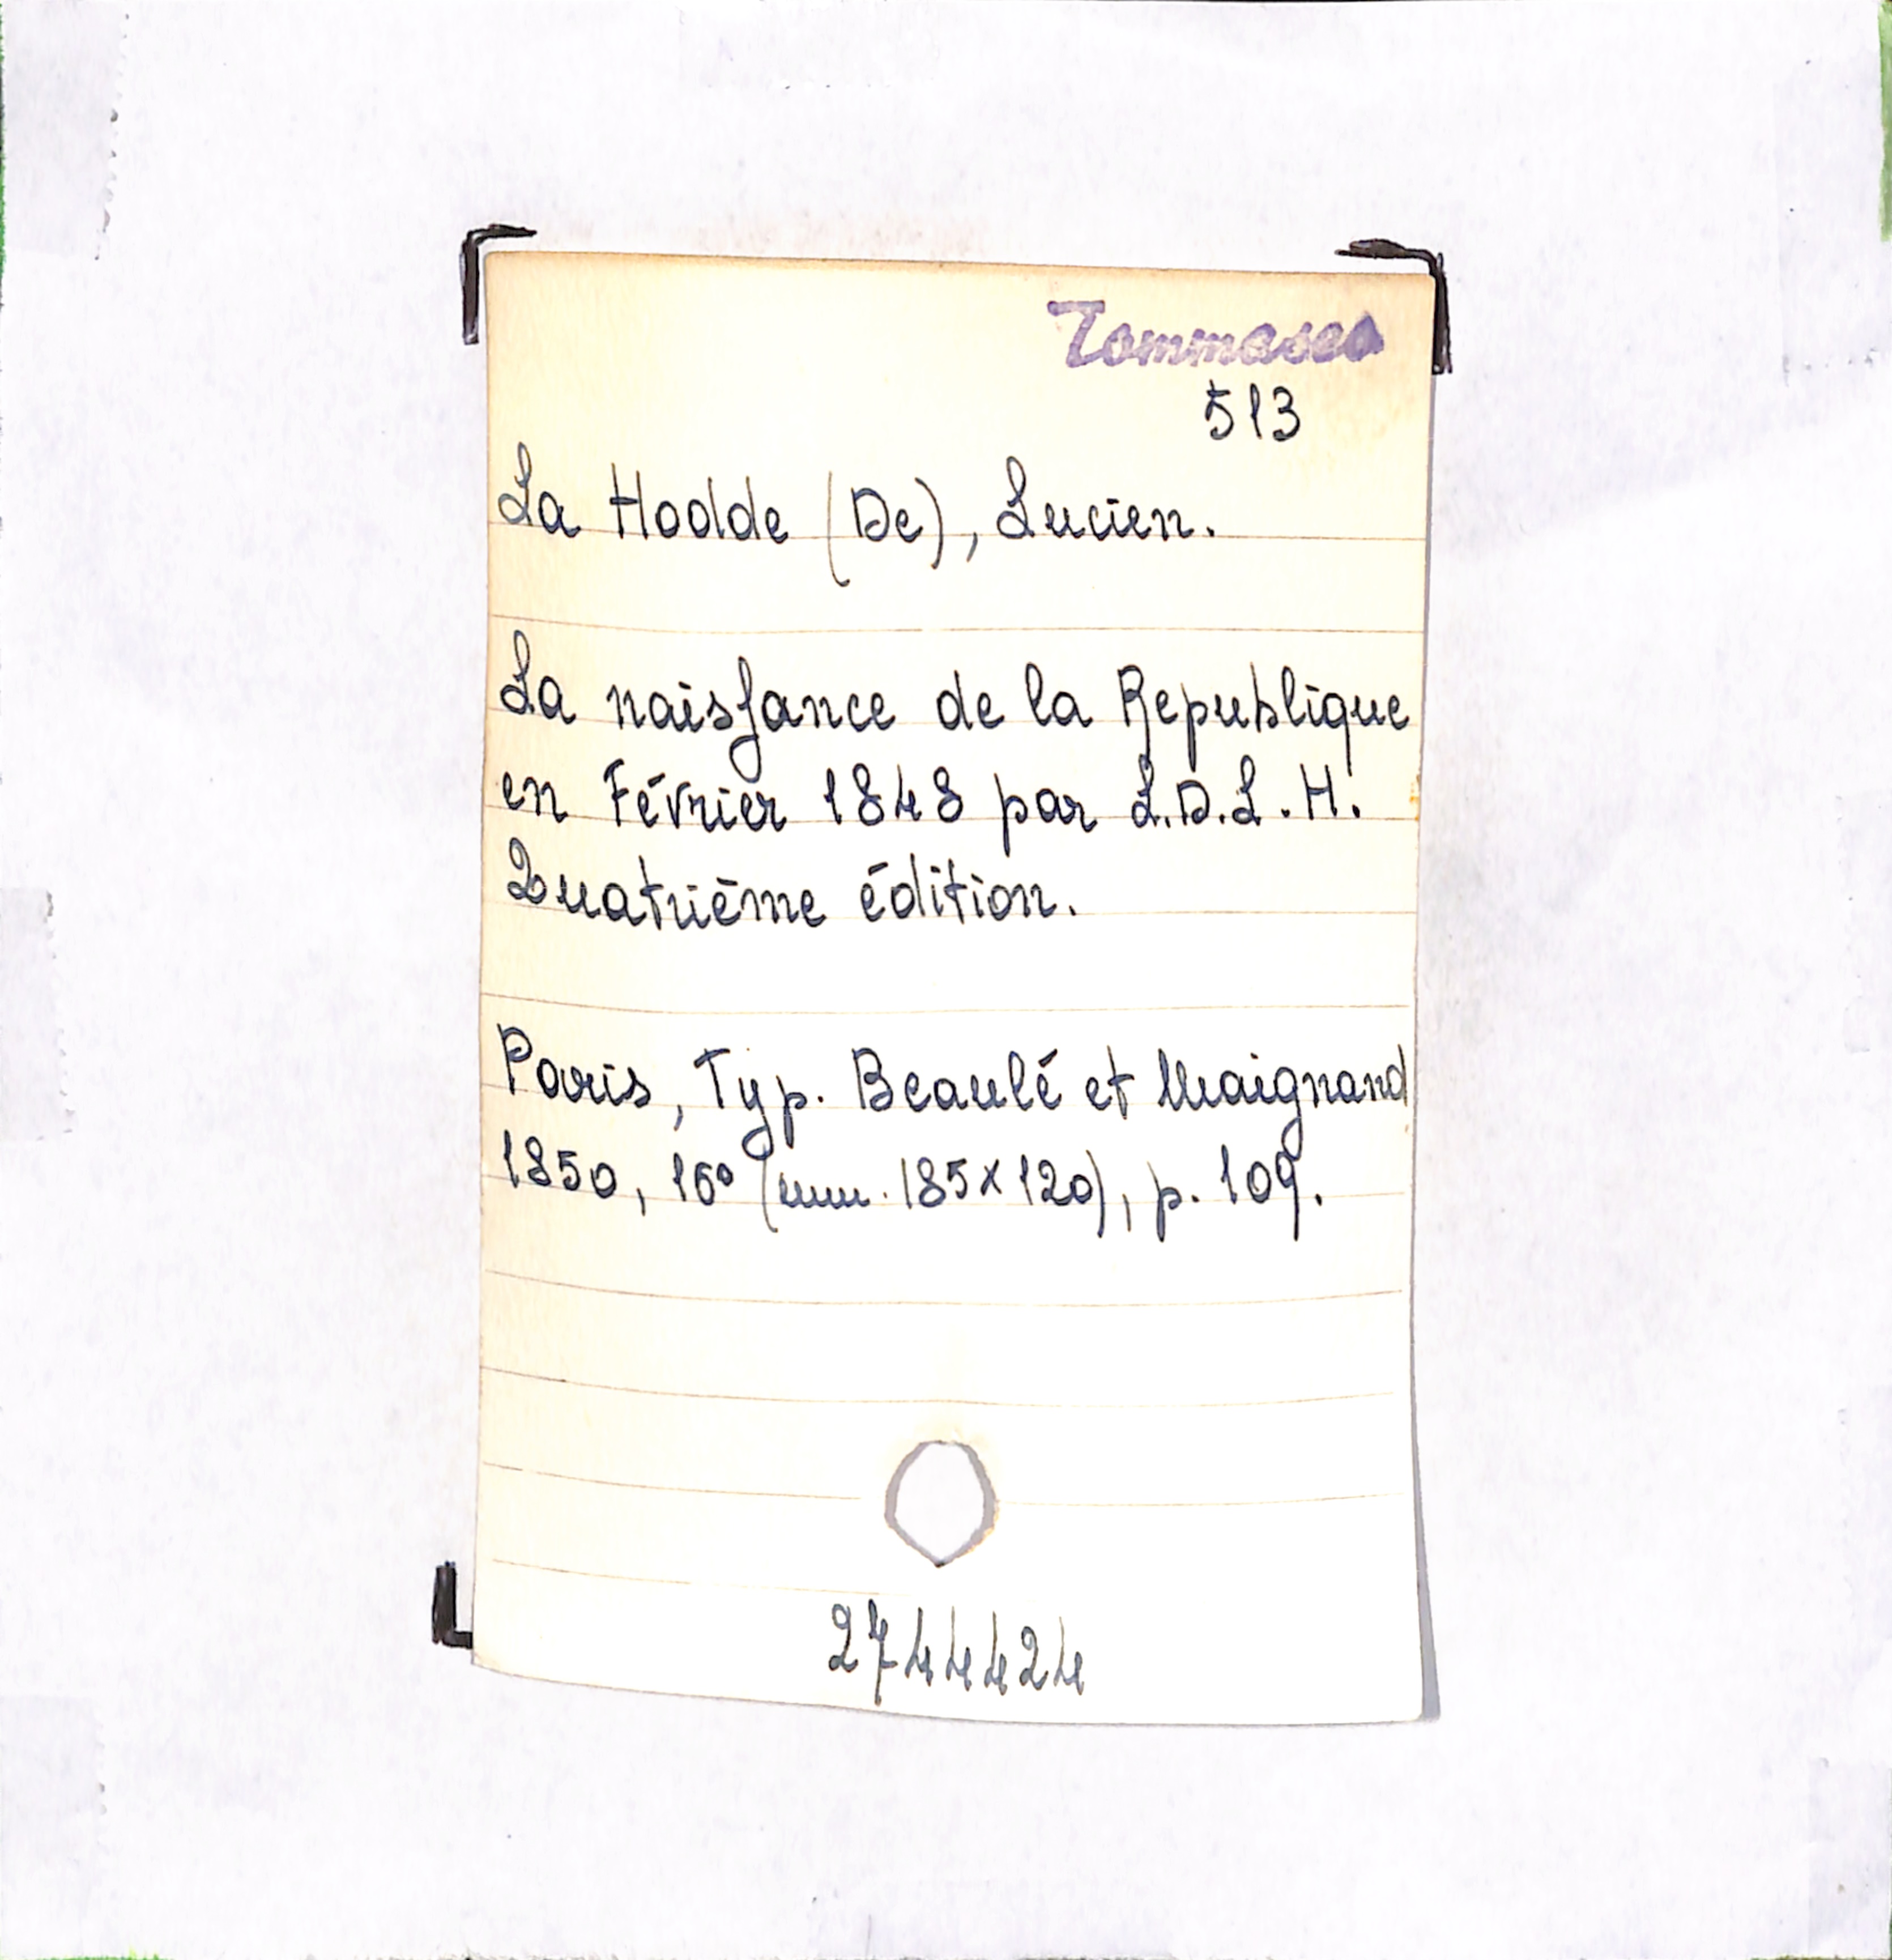 Tommaseo
513
La Hodde (De), Lucien.
La naissance de la Republique
en Février 1848 par L.D.L.H.
Quatriéme édition.
Paris, Typ. Beaulé et Maignand
1850, 16° (mm. 185x120), p. 109.
2744424